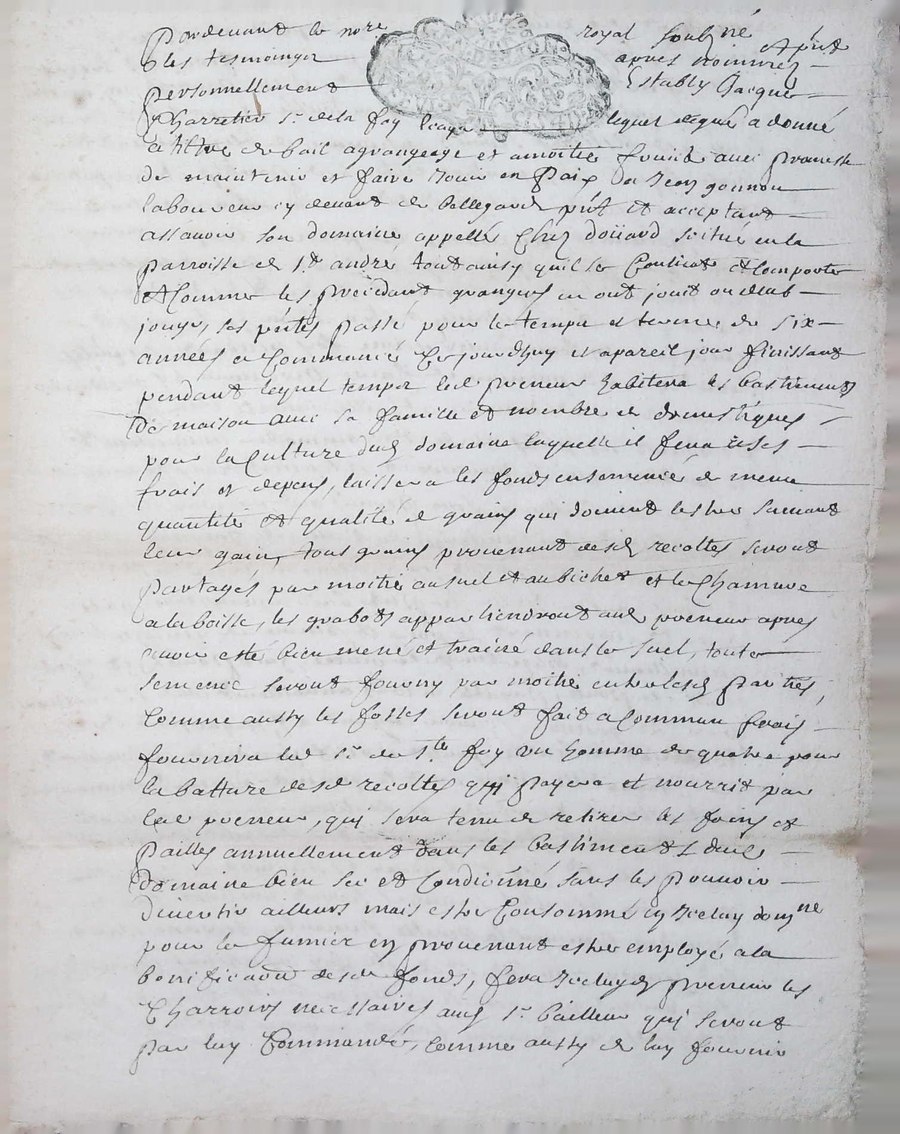 Pardevant le no.re royal soubz.né
& les tesmoings apres nommez et p.nt
personnellement Estably Jacque
Charretier s.r de la foy lequel degré a donné
a tiltre de bail a grangeage et a moitié fruict avec promesse
de maintenir et faire Jouir en paix a Jean gonnon
laboureur cy devant de bellegarde p.nt et acceptant
assavoir son domaine appellé Chez doüard scitué en la
parroisse de s.t andré tout ainsy quil se Contient et Comporte
et Comme les precedant grangers en ont jouit ou deub
jouyr, les p.ntes passé pour le temps et terme de six
années a Commancé Ce jourdhuy et a pareil jour finissant
pendant lequel temps led preneur habitera les bastiments
de maison avec sa famille et nombre de domestiques
pour la Culture dud domaine laquelle il fera a ses
frais et depens, laissera les fonds ensemencé de meme
quantité et qualité de grains qui doivent estre suivant
leur gain, tous grains provenant desd recoltes seront
partagés par moitié au suel et au bichet et le Chanvre
a la boisse, les grabots appartiendront aud preneur apres
avoir esté bien mené et trainé dans le suel, toutes
semence seront fourny par moitié entre lesd parties,
Comme aussy les fosses seront fait a Commun frais
fournira led s.r de s.te foy un homme de quatre pour
la batture desd recoltes qui payera et nourrit par
led preneur, qui sera tenu de retirer les foins et
pailles annuellement dans les bastiments dud
domaine bien sec et Condiionné sans les pouvoir
divertir ailleurs mais estre Consommé en Iceluy dom.ne
pour le fumier en provenant estre employé a la
bonification desd fonds, fera Iceluyd preneur les
Charroirs necessaires aud s.r bailleur qui seront
par luy Commandé, Comme aussy de luy fournir